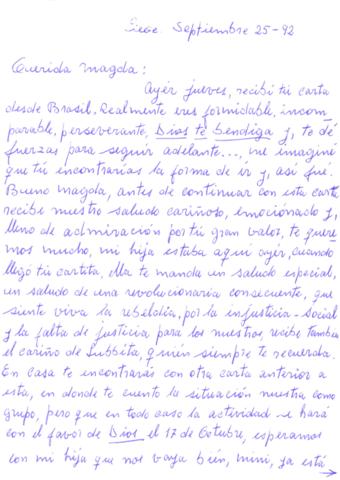 Siece. Septiembre 25-92
Querida Magda:
Ayér jueves, recibí tú carta
desde Brasil. Realmente eres formidable, incom
parable, perseverante, Dios te bendiga y, te dé
fuerzas para seguir adelante..., me imaginé
que tú encontrarías la forma de ir y, así fué.
Bueno Magda, antes de continuar con esta carta
recibe nuestro saludo cariñoso, emocionado y,
lleno de admiración por tú gran valor, te quere
mos mucho, mi hija estaba aquí ayér, cuando
llegó tú cartita, ella te manda un saludo especial,
un saludo de una revolucionaria consecuente, que
siente viva la rebeldía, por la injusticia-social
y la falta de justicia para los nuestros, recibe también
el cariño de Lubbita, quién siempre te recuerda.
En casa te encontrarás con otra carta anterior a
esta, en donde te cuento la situación nuestra como
grupo, pero que en todo caso la actividad se hará
con el favor de Dios el 17 de Octubre, esperamos
con mi hija que nos vaya bién, mini, ya está